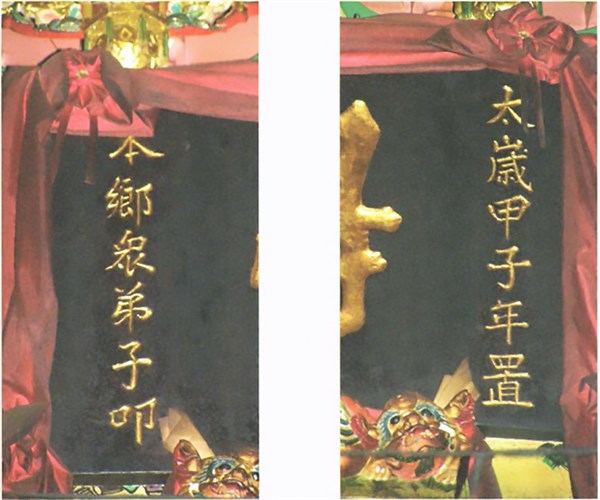 太嵗甲子年置
本鄉眾弟子叩